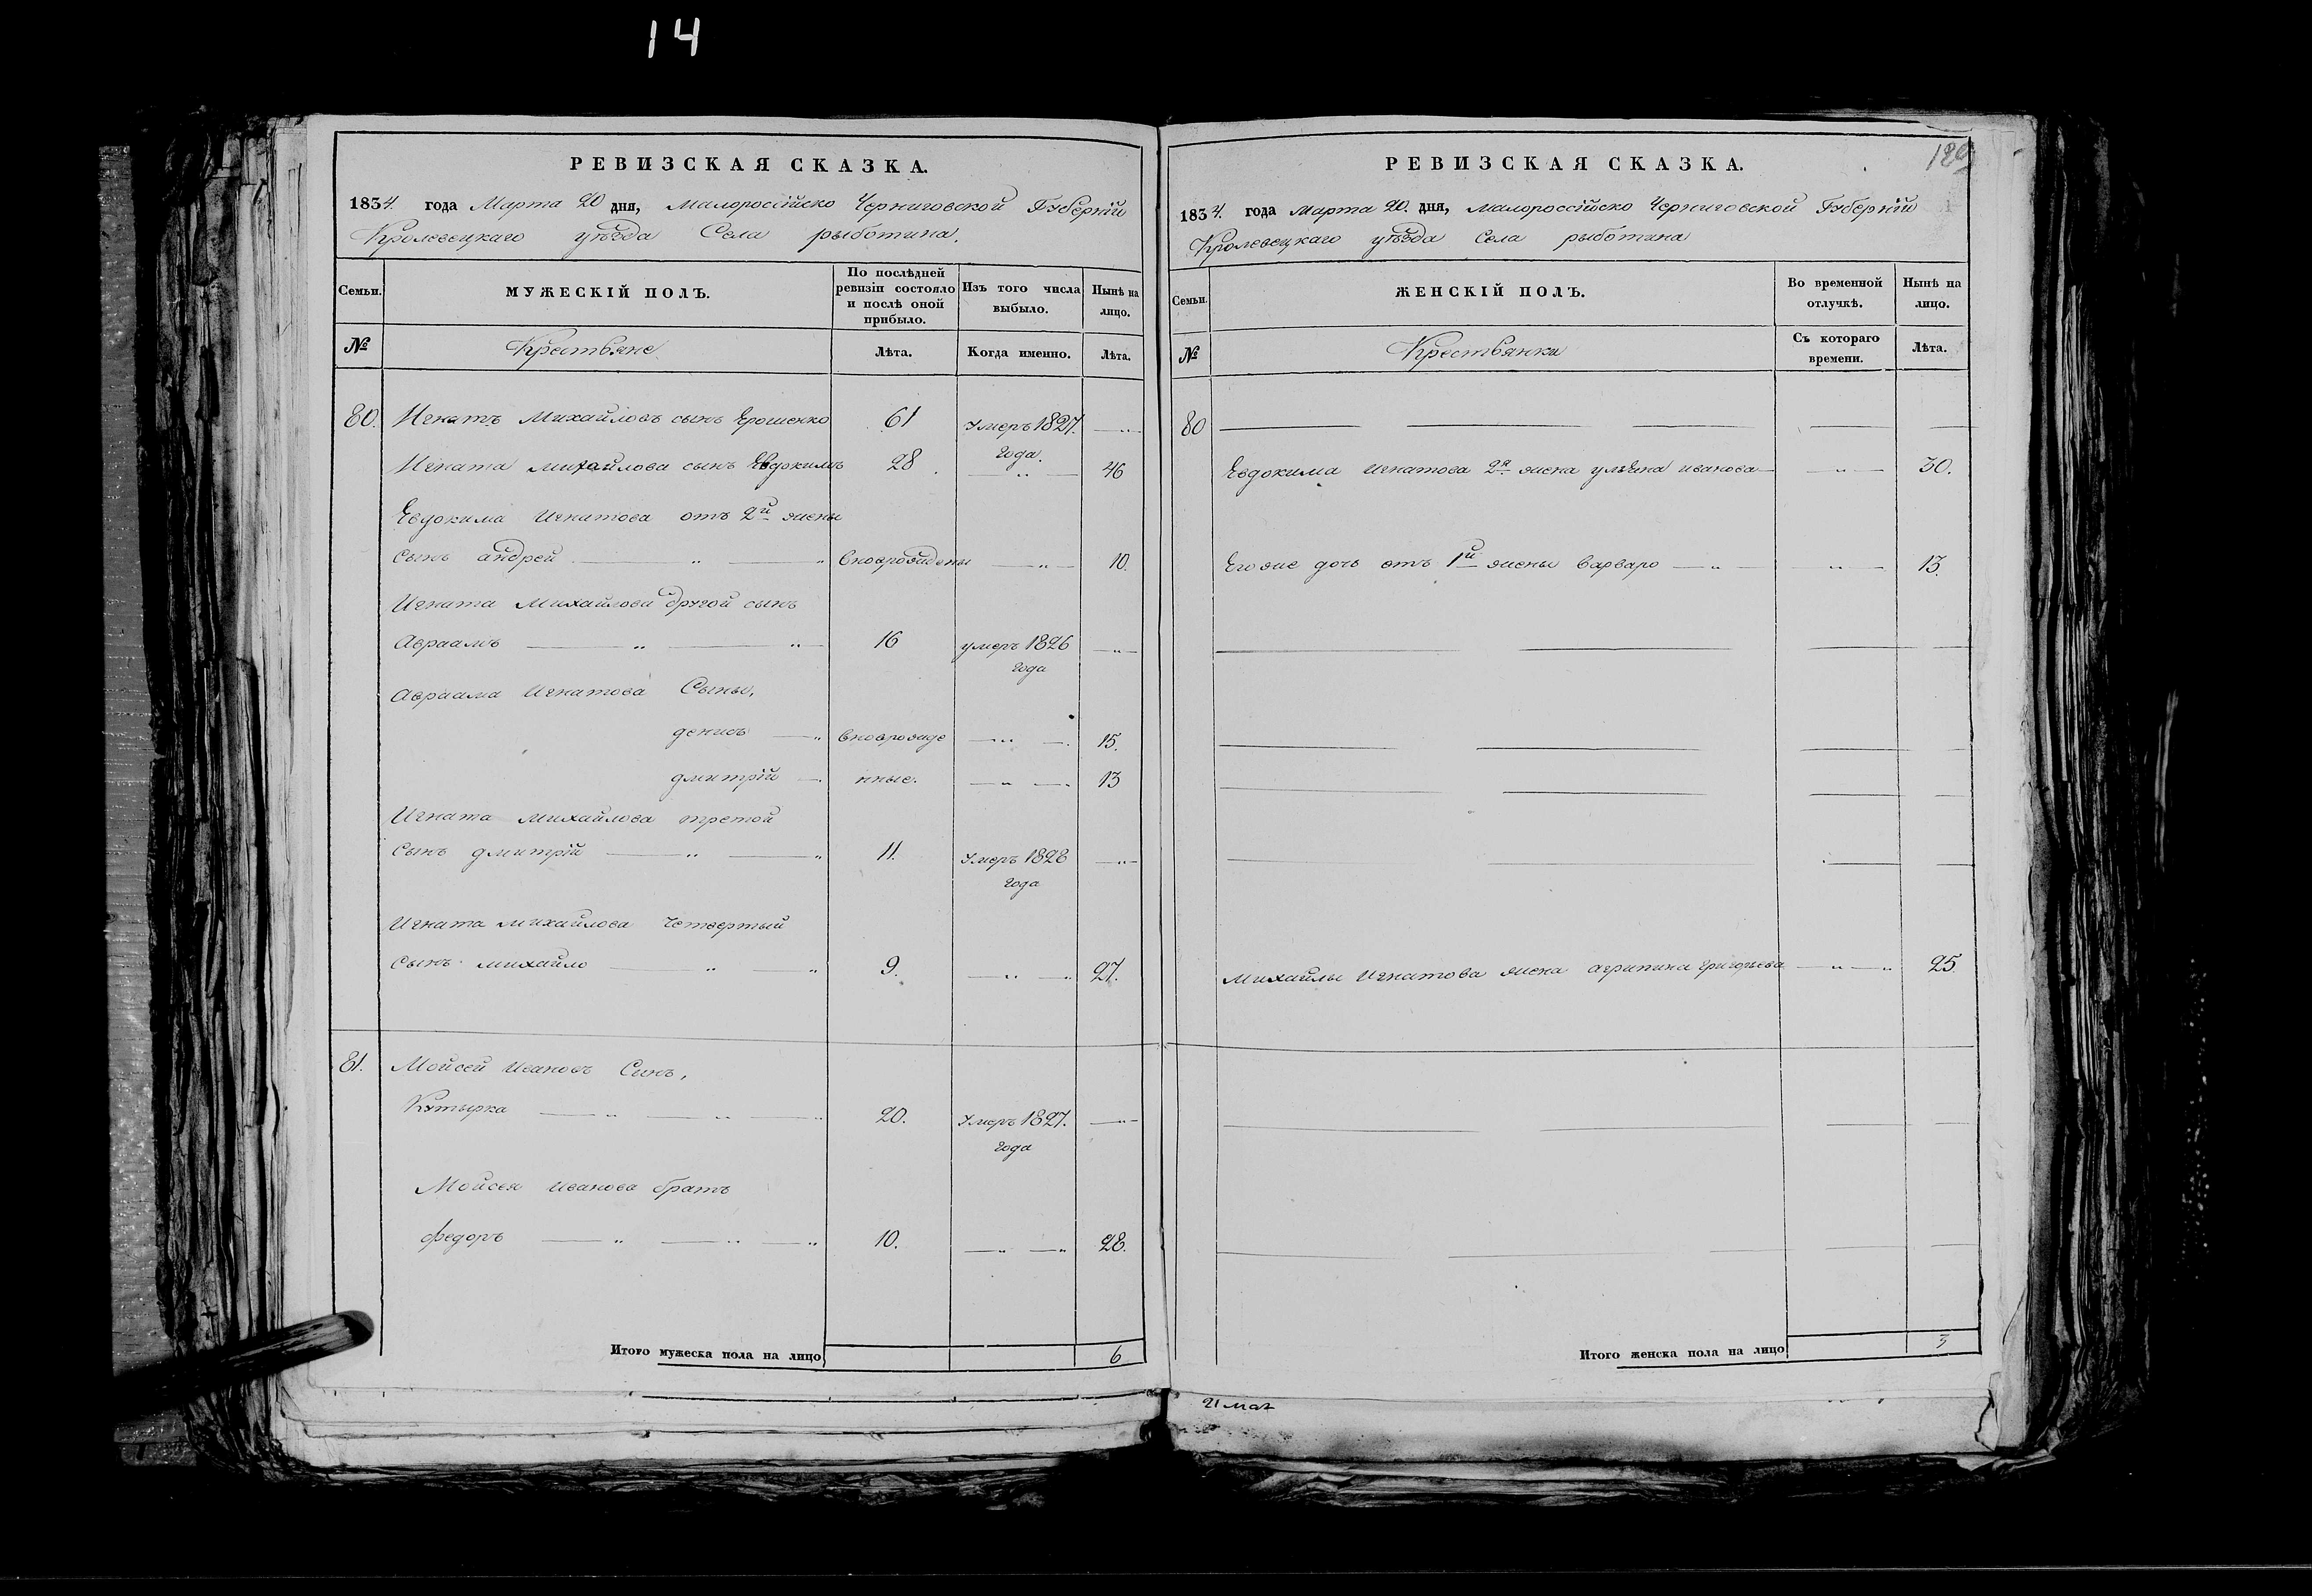 14
РЕВИЗСКАЯ СКАЗКА.
1834. года Марта 20 дня, Малороссійско Черниговской Губерніи
Кролевецкаго уѣзда Села рыботина.
Семьи.
МУЖЕСКІЙ ПОЛЪ.
По послѣдней ревизіи состояло и послѣ оной прибыло.
Изъ того числа выбыло.
Нынѣ на лицо.
№
Крестьяне
Лѣта.
Когда именно.
Лѣта.
80. Игнатъ Михайловъ сынъ Ерошенко 61 Умеръ 1827.
года.
Игната михайлова сынъ Евдокимъ 28 46
Евдокима Игнатова отъ 2й жены
сынъ андрей вноврожденый 10.
Игната Михайлова другой сынъ
Авраамъ 16 умеръ 1826
года
Авраама Игнатова Сыны,
денисъ вновророжде 15.
дмитрій нные. 13
Игната михайлова третой
Сынъ дмитрій 11. Умеръ 1828
года
Игната михайлова Четвертый
Сынъ михайло 9. 27.
81. Мойсей Ивановъ Синъ,
Кутырка 20. Умеръ 1827.
года
Мойсея иванова братъ
федоръ 10. 28.
Итого мужеска пола на лицо 6
РЕВИЗСКАЯ СКАЗКА.
1834. года Марта 20. дня, малороссійско Черниговской Губерніи
Кролевецкаго уѣзда Села рыботина
Семьи.
ЖЕНСКІЙ ПОЛЪ.
Во временной отлучкѣ.
Нынѣ на лицо.
№
Крестьянки
Съ котораго времени.
Лѣта.
80
Евдокима игнатова 2я жена ульяна иванова 30.
Его же дочь отъ 1й жены варваро 13.
Михайлы Игнатова жена агрипина григорьева 25.
Итого женска пола на лицо 3